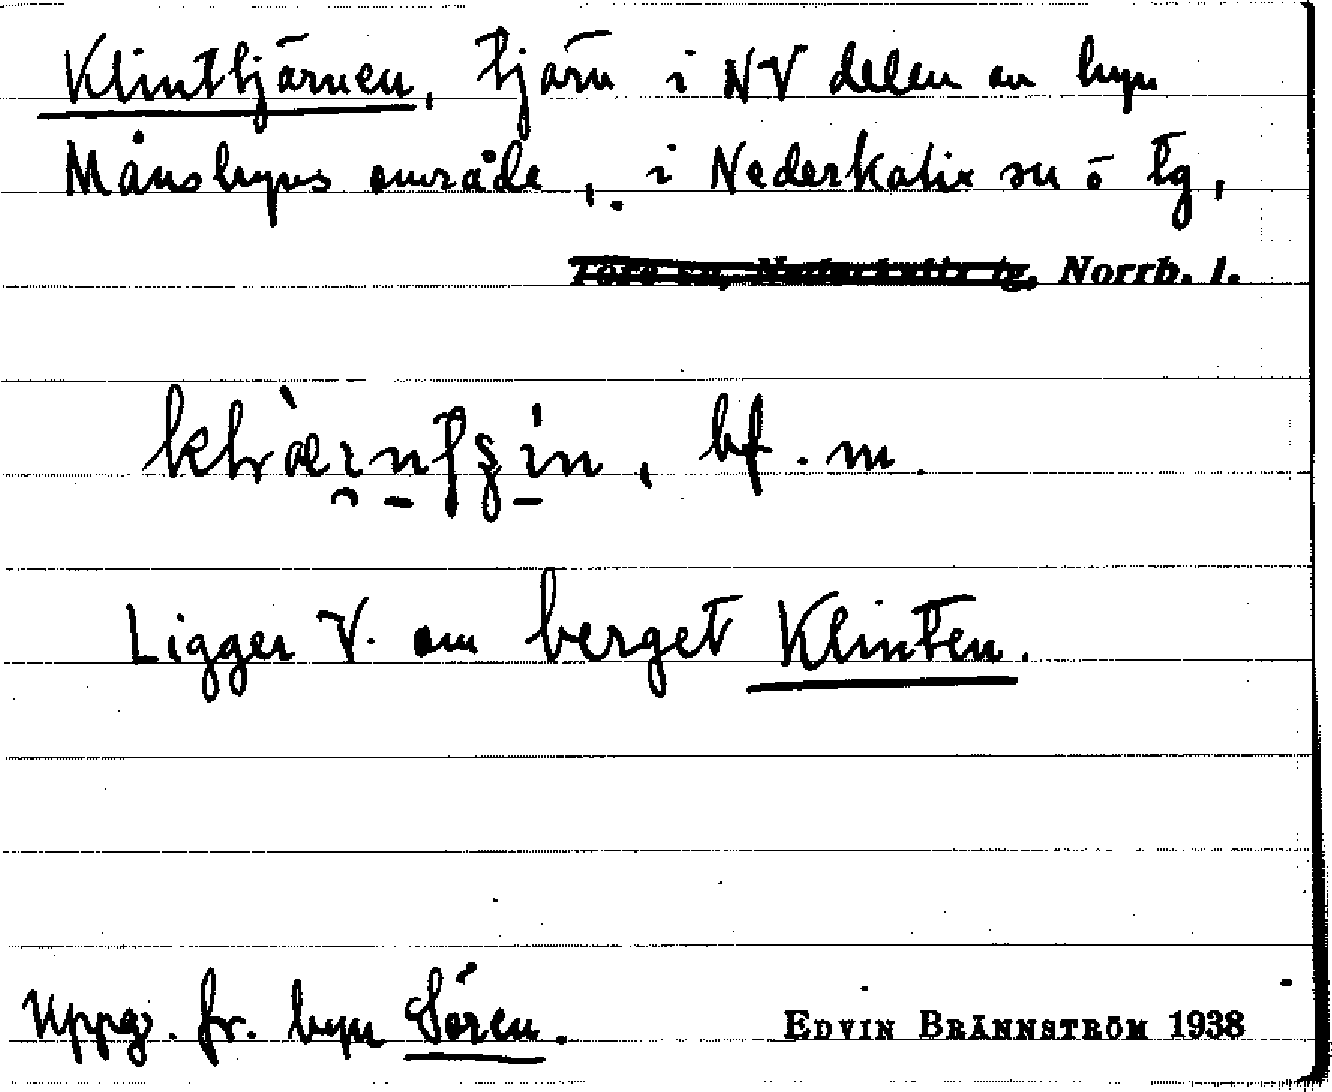 Klinttjärnen, tjärn i NV delen av byn
Månsbyns område, i Nederkalix sn o tg,
Töre sn, Nederkalix tg, Norrb. l.
bf. m.
Ligger V. om berget Klinten.
Uppg. fr. byn Sören.
EDVIN BRÄNNSTRÖM 1938